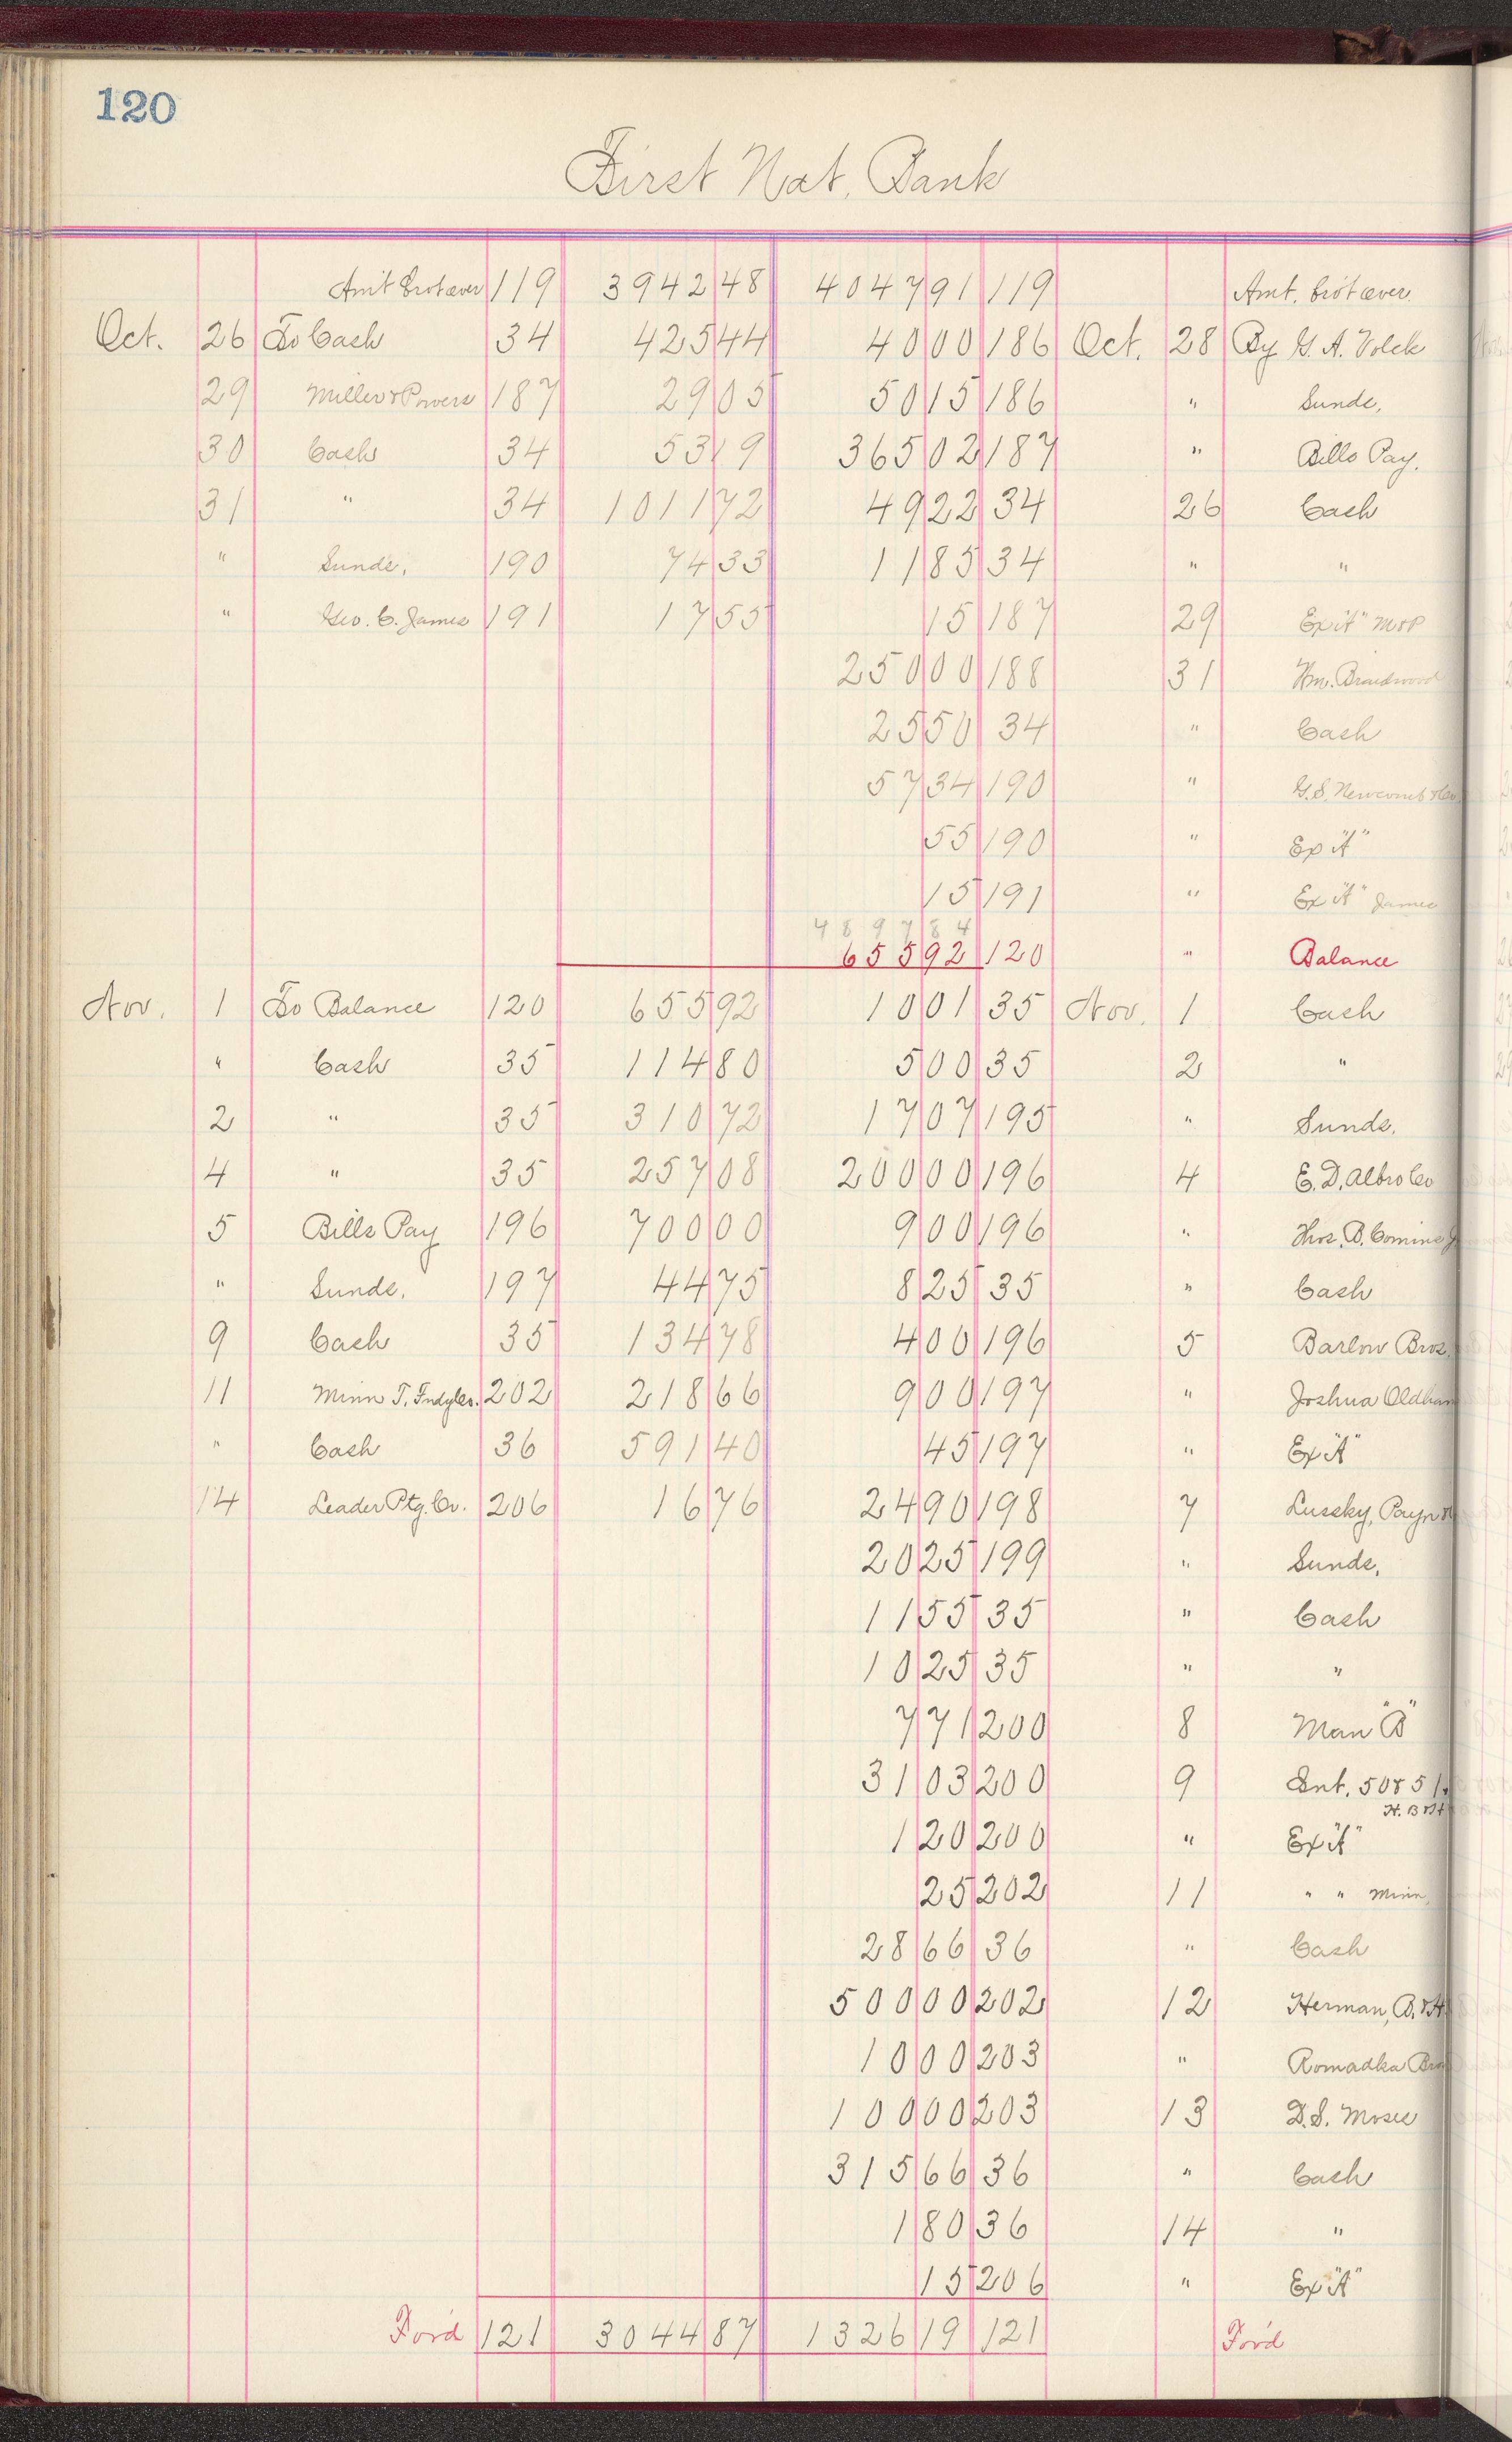 120
First Nat. Bank
Am't bro't over 119 3942 48 4047 91 119 Amt. bro't over.
Oct. 26 To Cash 34 425 44 40 00 186 Oct. 28 By G. A. Volck
29 Miller & Powers 187 29 05 50 15 186 " Sunds.
30 Cash 34 53 19 365 02 187 " Bills Pay.
31 " 34 1011 72 49 22 34 26 Cash
" Sunds. 190 74 33 11 85 34 " "
" Geo. C. James 191 17 55 15 187 29 Ex "A" M & P
250 00 188 31 Wm. Braidwood
25 50 34 " Cash
57 34 190 " G. S. Newcomb & Co.
55 190 " Ex "A"
15 191 " Ex "A" James
4897 84
655 92 120 " Balance
Nov. 1 To Balance 120 655 92 10 01 35 Nov. 1 Cash
" Cash 35 114 80 5 00 35 2 "
2 " 35 310 72 17 07 195 " Sunds.
4 " 35 257 08 200 00 196 4 E. D. Albro Co
5 Bills Pay 196 700 00 9 00 196 " Thos. B. Comins
" Sunds. 197 44 75 8 25 35 " Cash
9 Cash 35 134 78 4 00 196 5 Barlow Bros.
11 Minn T. Fndy Co. 202 218 66 9 00 197 " Joshua Oldham
" Cash 36 591 40 45 197 " Ex "A"
14 Leader Ptg. Co. 206 16 76 24 90 198 7 Lussky, Payn &
20 25 199 " Sunds.
11 55 35 " Cash
10 25 35 " "
7 71 200 8 Man "B"
31 03 200 9 Int. 50 & 51.
H. B & H
1 20 200 " Ex "A"
25 202 11 " " Minn.
28 66 36 " Cash
500 00 202 12 Herman, B. & H.
10 00 203 " Romadka Bros
100 00 203 13 D. S. Moses
315 66 36 " Cash
1 80 36 14 "
15 206 " Ex "A"
For'd 121 3044 87 1326 19 121 For'd